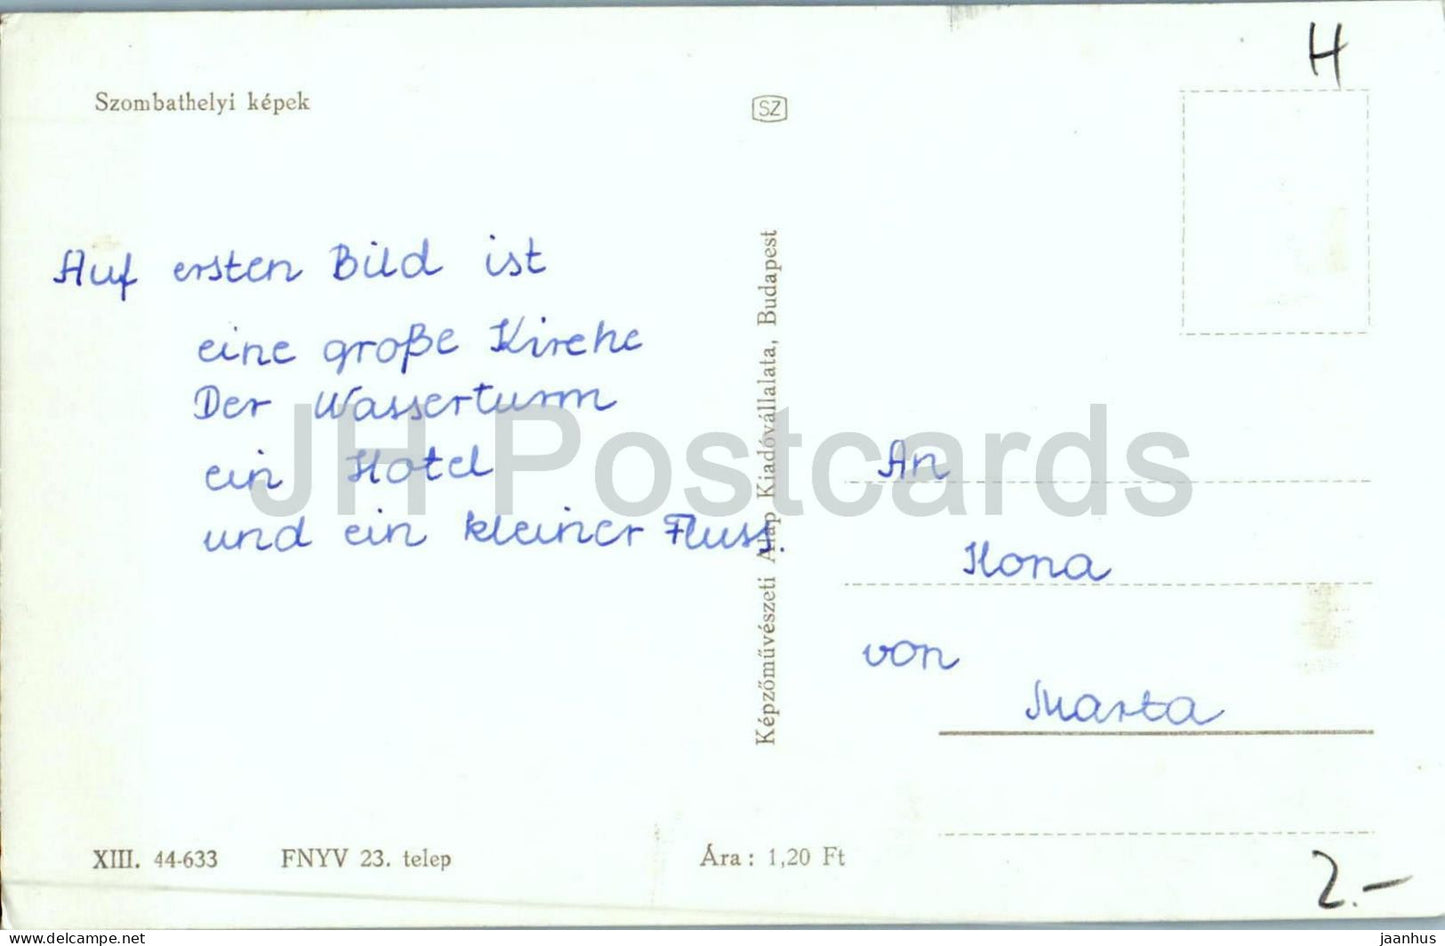 H
Szombathelyi képek
SZ
Auf ersten Bild ist
eine große Kirche
Der Wasserturm
ein Hotel
und ein kleiner Fluss.
Képzőművészeti Alap Kiadóvállalata, Budapest
An
Ilona
von
Marta
JH Postcards
XIII. 44-633 FNYV 23. telep Ára : 1,20 Ft
2.-
www.delcampe.net
jaanhus